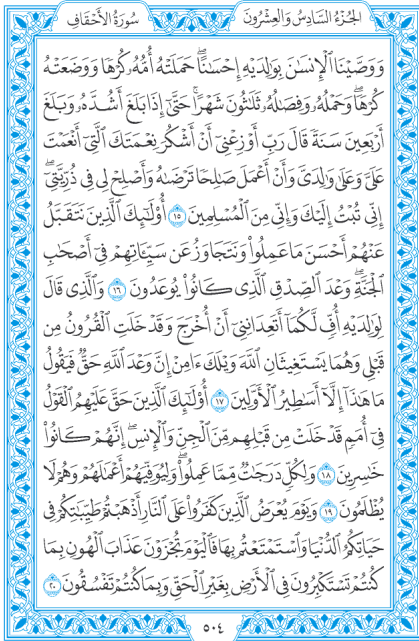 الجُزْءُ السَّادِسُ وَالعِشْرُونَ سُورَةُ الأَحْقَافِ
وَوَصَّيْنَا ٱلْإِنسَٰنَ بِوَٰلِدَيْهِ إِحْسَٰنًا ۖ حَمَلَتْهُ أُمُّهُۥ كُرْهًا وَوَضَعَتْهُ
كُرْهًا ۖ وَحَمْلُهُۥ وَفِصَٰلُهُۥ ثَلَٰثُونَ شَهْرًا ۚ حَتَّىٰٓ إِذَا بَلَغَ أَشُدَّهُۥ وَبَلَغَ
أَرْبَعِينَ سَنَةً قَالَ رَبِّ أَوْزِعْنِىٓ أَنْ أَشْكُرَ نِعْمَتَكَ ٱلَّتِىٓ أَنْعَمْتَ
عَلَىَّ وَعَلَىٰ وَٰلِدَىَّ وَأَنْ أَعْمَلَ صَٰلِحًا تَرْضَىٰهُ وَأَصْلِحْ لِى فِى ذُرِّيَّتِىٓ ۖ
إِنِّى تُبْتُ إِلَيْكَ وَإِنِّى مِنَ ٱلْمُسْلِمِينَ ١٥ أُو۟لَٰٓئِكَ ٱلَّذِينَ نَتَقَبَّلُ
عَنْهُمْ أَحْسَنَ مَا عَمِلُوا۟ وَنَتَجَاوَزُ عَن سَيِّـَٔاتِهِمْ فِىٓ أَصْحَٰبِ
ٱلْجَنَّةِ ۖ وَعْدَ ٱلصِّدْقِ ٱلَّذِى كَانُوا۟ يُوعَدُونَ ١٦ وَٱلَّذِى قَالَ
لِوَٰلِدَيْهِ أُفٍّ لَّكُمَآ أَتَعِدَانِنِىٓ أَنْ أُخْرَجَ وَقَدْ خَلَتِ ٱلْقُرُونُ مِن
قَبْلِى وَهُمَا يَسْتَغِيثَانِ ٱللَّهَ وَيْلَكَ ءَامِنْ إِنَّ وَعْدَ ٱللَّهِ حَقٌّ فَيَقُولُ
مَا هَٰذَآ إِلَّآ أَسَٰطِيرُ ٱلْأَوَّلِينَ ١٧ أُو۟لَٰٓئِكَ ٱلَّذِينَ حَقَّ عَلَيْهِمُ ٱلْقَوْلُ
فِىٓ أُمَمٍ قَدْ خَلَتْ مِن قَبْلِهِم مِّنَ ٱلْجِنِّ وَٱلْإِنسِ ۖ إِنَّهُمْ كَانُوا۟
خَٰسِرِينَ ١٨ وَلِكُلٍّ دَرَجَٰتٌ مِّمَّا عَمِلُوا۟ ۖ وَلِيُوَفِّيَهُمْ أَعْمَٰلَهُمْ وَهُمْ لَا
يُظْلَمُونَ ١٩ وَيَوْمَ يُعْرَضُ ٱلَّذِينَ كَفَرُوا۟ عَلَى ٱلنَّارِ أَذْهَبْتُمْ طَيِّبَٰتِكُمْ فِى
حَيَاتِكُمُ ٱلدُّنْيَا وَٱسْتَمْتَعْتُم بِهَا فَٱلْيَوْمَ تُجْزَوْنَ عَذَابَ ٱلْهُونِ بِمَا
كُنتُمْ تَسْتَكْبِرُونَ فِى ٱلْأَرْضِ بِغَيْرِ ٱلْحَقِّ وَبِمَا كُنتُمْ تَفْسُقُونَ ٢٠
٥٠٤